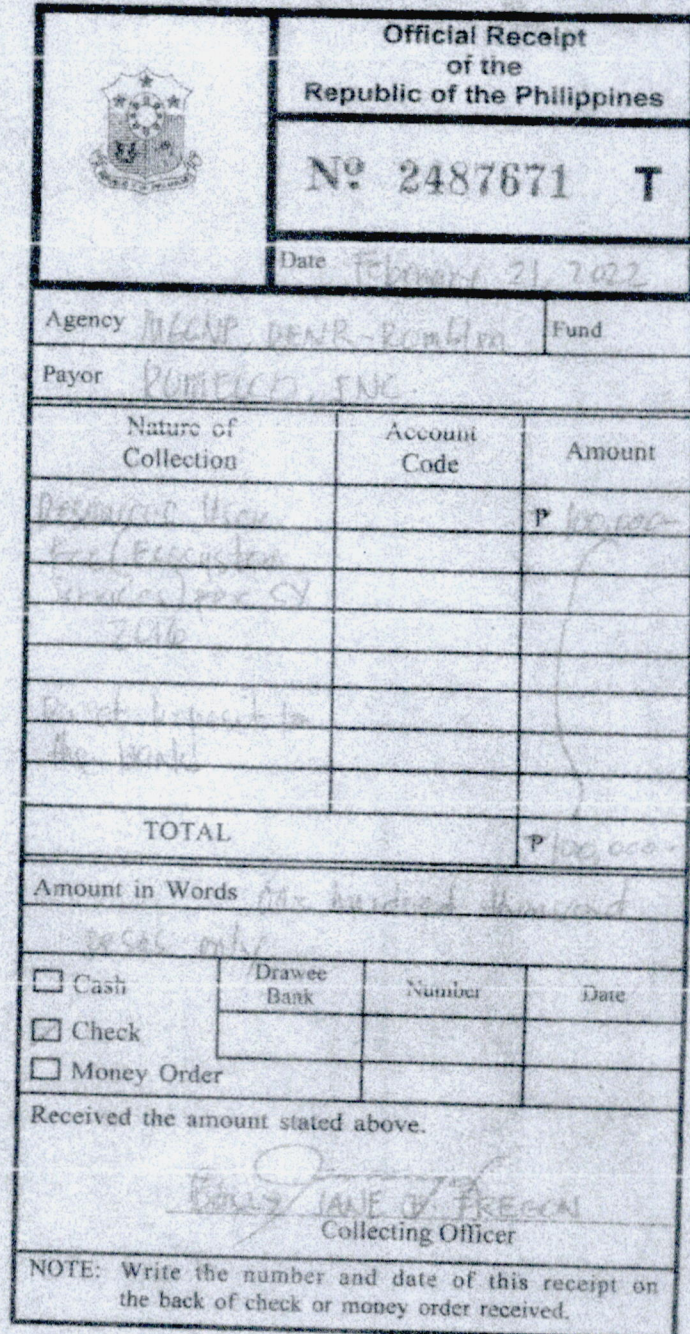 Official Receipt
of the
Republic of the Philippines
Nº 2487671 T
Date February 21, 2022
Agency MGCNP, DENR-Romblon
Fund
Payor INC.
Nature of
Collection
Account
Code
Amount
Resource User
Fee (Ecosystem
Services) per CY
2016
₱ 100,000-
Direct deposit to
the bank
TOTAL
₱ 100,000-
Amount in Words One hundred thousand
pesos only
Cash
Check
Money Order
Drawee
Bank
Number
Date
Received the amount stated above.
JANE
Collecting Officer
NOTE: Write the number and date of this receipt on
the back of check or money order received.